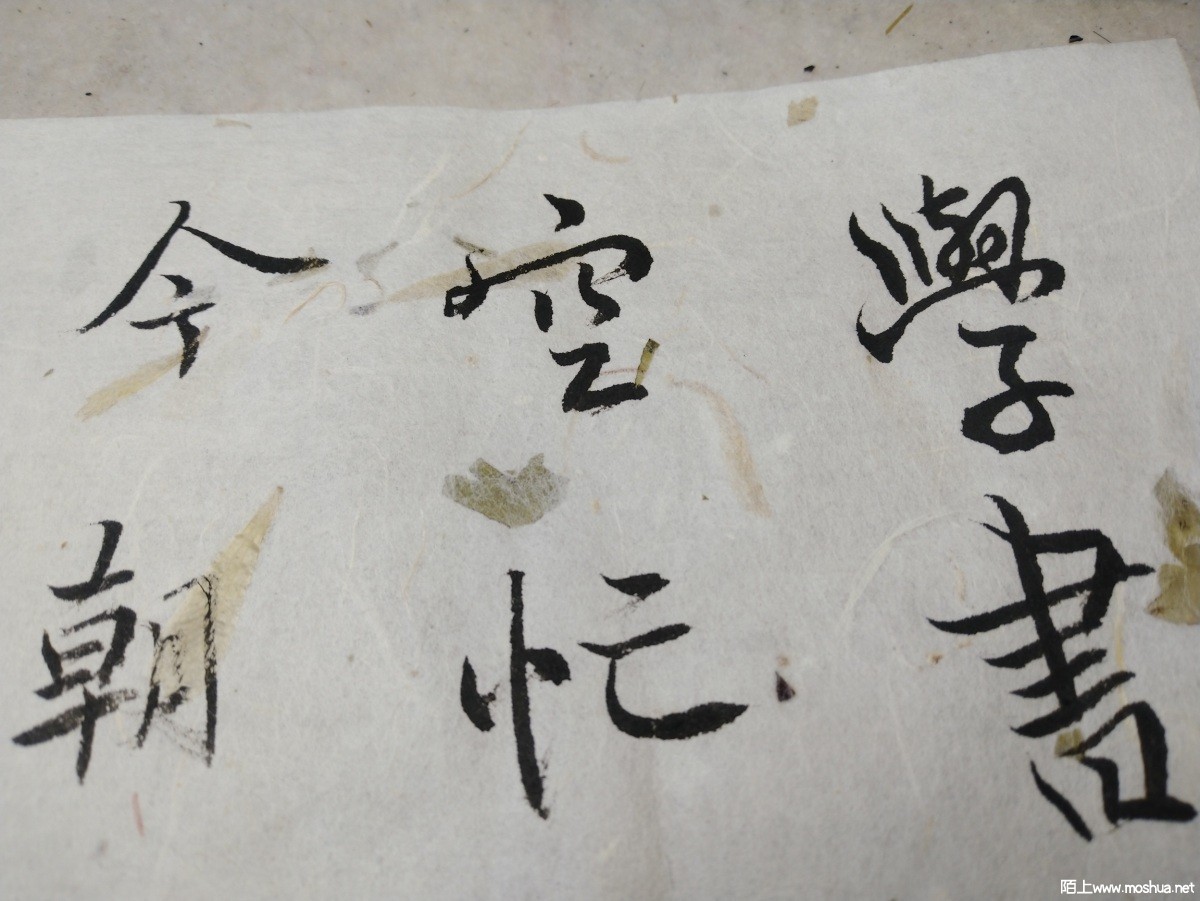 學書
空忙
今朝
陌上www.moshua.net